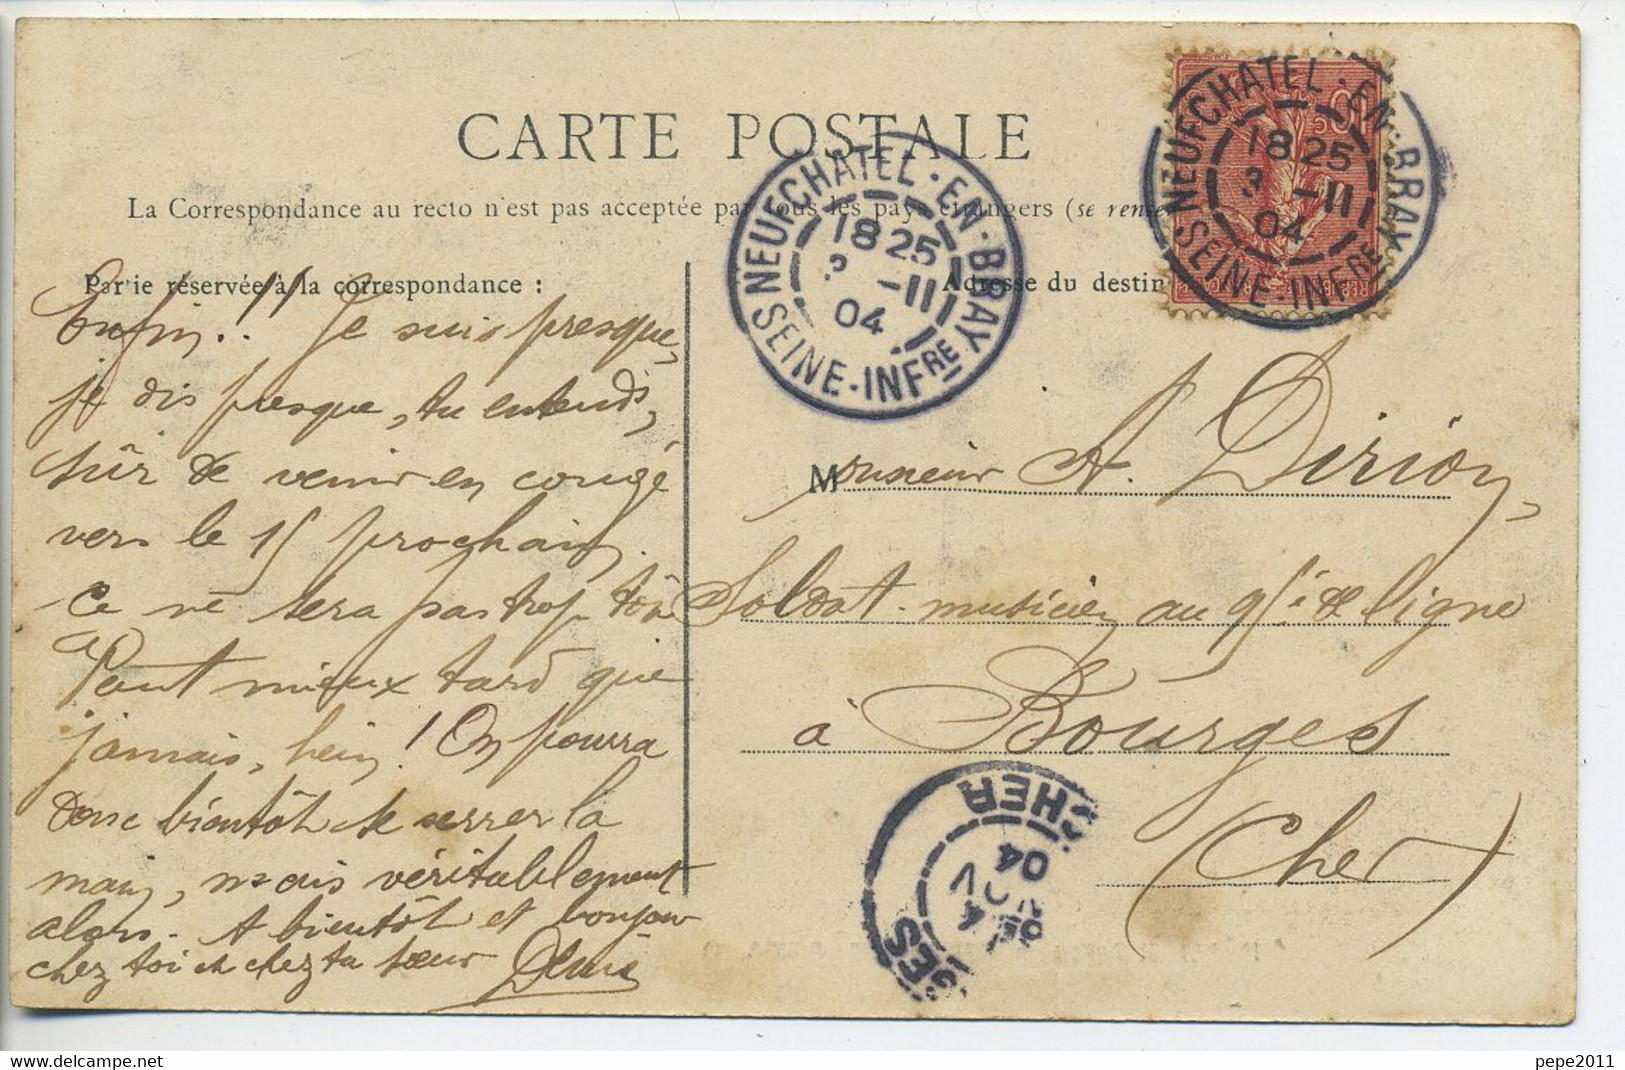 CARTE POSTALE
La Correspondance au recto n'est pas acceptée par tous les pays étrangers (se rense
Partie réservée à la correspondance :
Enfin..!! Je suis presque,
je dis presque, tu entends,
sûr de venir en congé
vers le 15 prochain.
Ce ne sera pas trop tôt
Vaut mieux tard que
jamais, hein! On pourra
donc bientôt te serrer la
main, mais véritablement
alors. A bientôt et bonjour
chez toi et chez ta sœur
Adresse du destin
Monsieur A. Dirion,
Soldat-musicien au 95e de ligne
à Bourges
(Cher)
NEUFCHATEL-EN-BRAY
18 25
3 -11
04
SEINE-INFRE
NEUFCHATEL-EN-BRAY
18 25
3 -11
04
SEINE-INFRE
50
CHER
04
NOV
4
GES
pepe2011